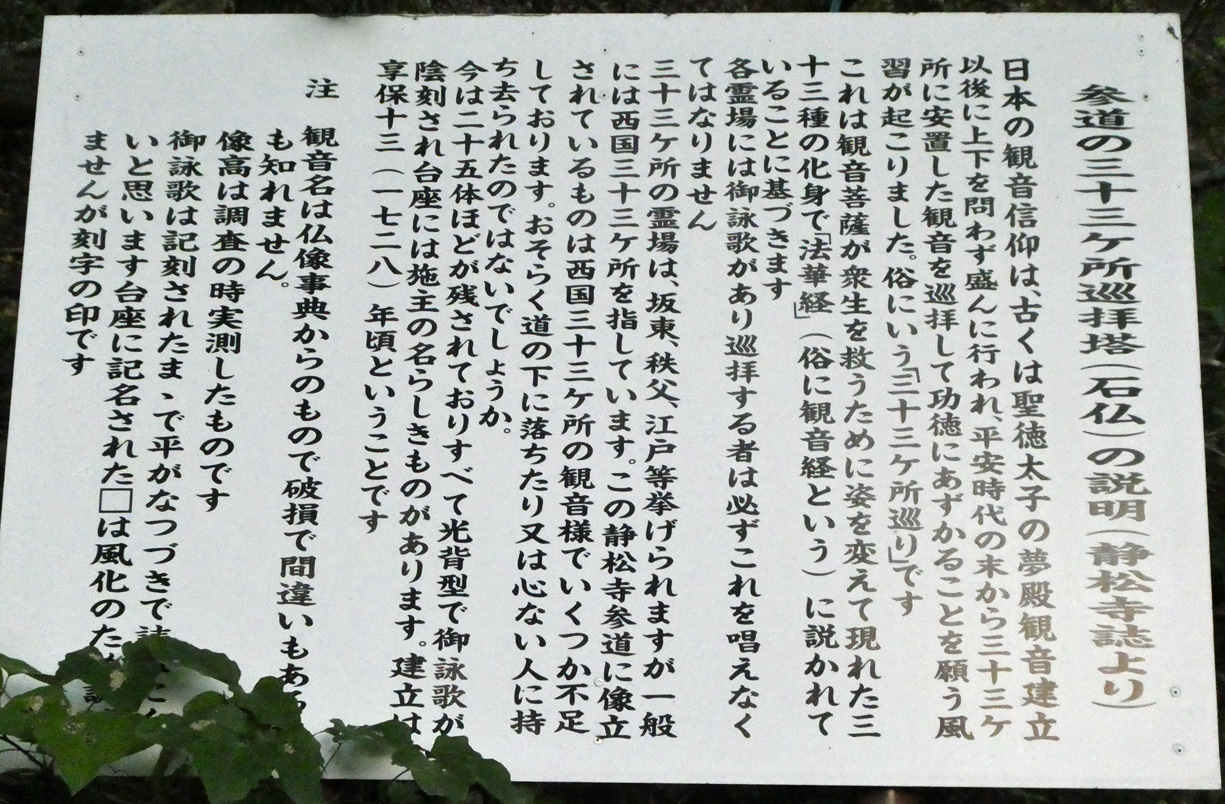 参道の三十三ケ所巡拝塔(石仏)の説明(静松寺誌より)
日本の観音信仰は、古くは聖徳太子の夢殿観音建立
以後に上下を問わず盛んに行われ、平安時代の末から三十三ケ
所に安置した観音を巡拝して功徳にあずかることを願う風
習が起こりました。俗にいう「三十三ケ所巡り」です
これは観音菩薩が衆生を救うために姿を変えて現れた三
十三種の化身で「法華経」(俗に観音経という)に説かれて
いることに基づきます
各霊場には御詠歌があり巡拝する者は必ずこれを唱えなく
てはなりません
三十三ケ所の霊場は、坂東、秩父、江戸等挙げられますが一般
には西国三十三ケ所を指しています。この静松寺参道に像立
されているものは西国三十三ケ所の観音様でいくつか不足
しております。おそらく道の下に落ちたり又は心ない人に持
ち去られたのではないでしょうか。
今は二十五体ほどが残されておりすべて光背型で御詠歌が
陰刻され台座には施主の名らしきものがあります。建立は
享保十三(一七二八)年頃ということです
注 観音名は仏像事典からのもので破損で間違いもある
も知れません。
像高は調査の時実測したものです
御詠歌は記刻されたまゝで平がなつづきで
いと思います台座に記名された□は風化のた
ませんが刻字の印です